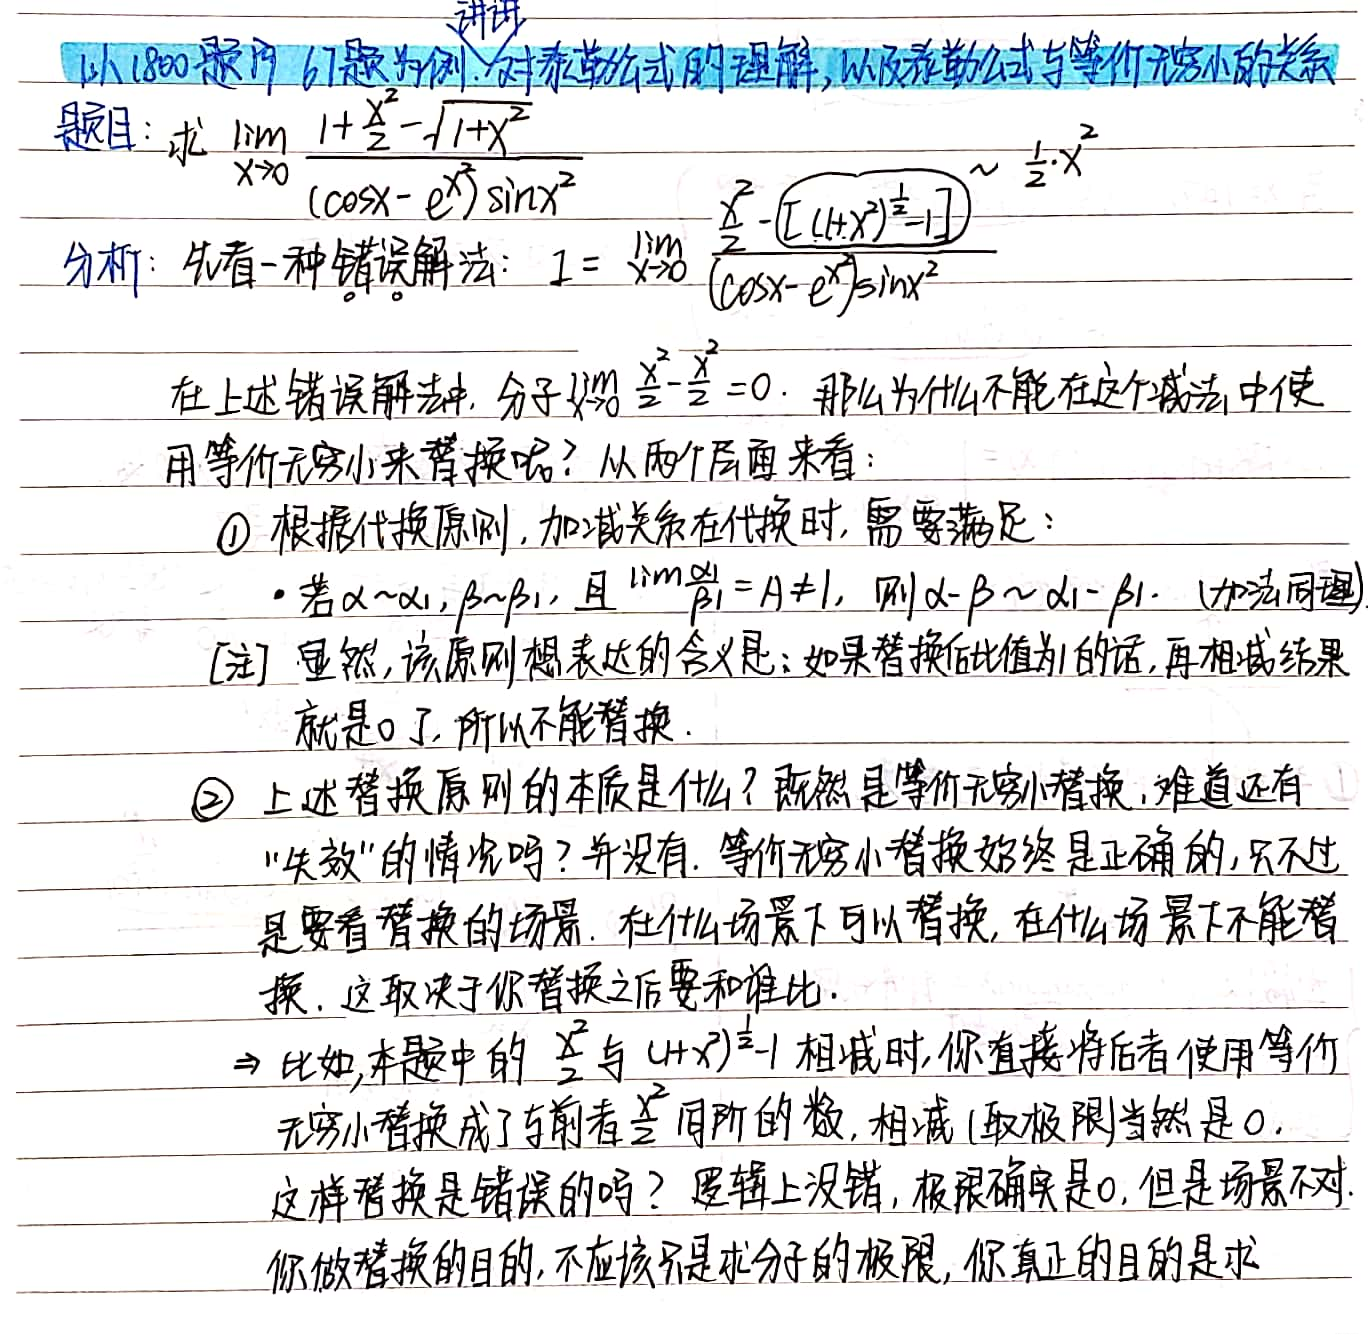 讲讲
以1800题的 67题为例,对泰勒公式的理解,以及泰勒公式与等价无穷小的关系
题目: 求 lim x→0 (1+x²/2-√(1+x²))/((cosx-e^(x²))sinx²)
分析: 先看一种错误解法: I = lim x→0 (x²/2-[(1+x²)^(1/2)-1])/((cosx-e^(x²))sinx²) ~ 1/2·x²
在上述错误解法中, 分子 lim x→0 x²/2-x²/2=0. 那么为什么不能在这个减法中使
用等价无穷小来替换呢? 从两个层面来看:
① 根据代换原则, 加减关系在代换时, 需要满足:
• 若α~α₁, β~β₁, 且 lim α₁/β₁=A≠1, 则 α-β~α₁-β₁. (加法同理)
[注] 显然, 该原则想表达的含义是: 如果替换后比值为1的话, 再相减结果
就是0了, 所以不能替换.
② 上述替换原则的本质是什么? 既然是等价无穷小替换, 难道还有
"失效"的情况吗? 并没有. 等价无穷小替换始终是正确的, 只不过
是要看替换的场景. 在什么场景下可以替换, 在什么场景下不能替
换. 这取决于你替换之后要和谁比.
⇒ 比如,本题中的 x²/2 与 (1+x²)^(1/2)-1 相减时, 你直接将后者使用等价
无穷小替换成了与前者 x²/2 同阶的数, 相减(取极限)当然是0.
这样替换是错误的吗? 逻辑上没错, 极限确实是0, 但是场景不对.
你做替换的目的, 不应该只是求分子的极限, 你真正的目的是求